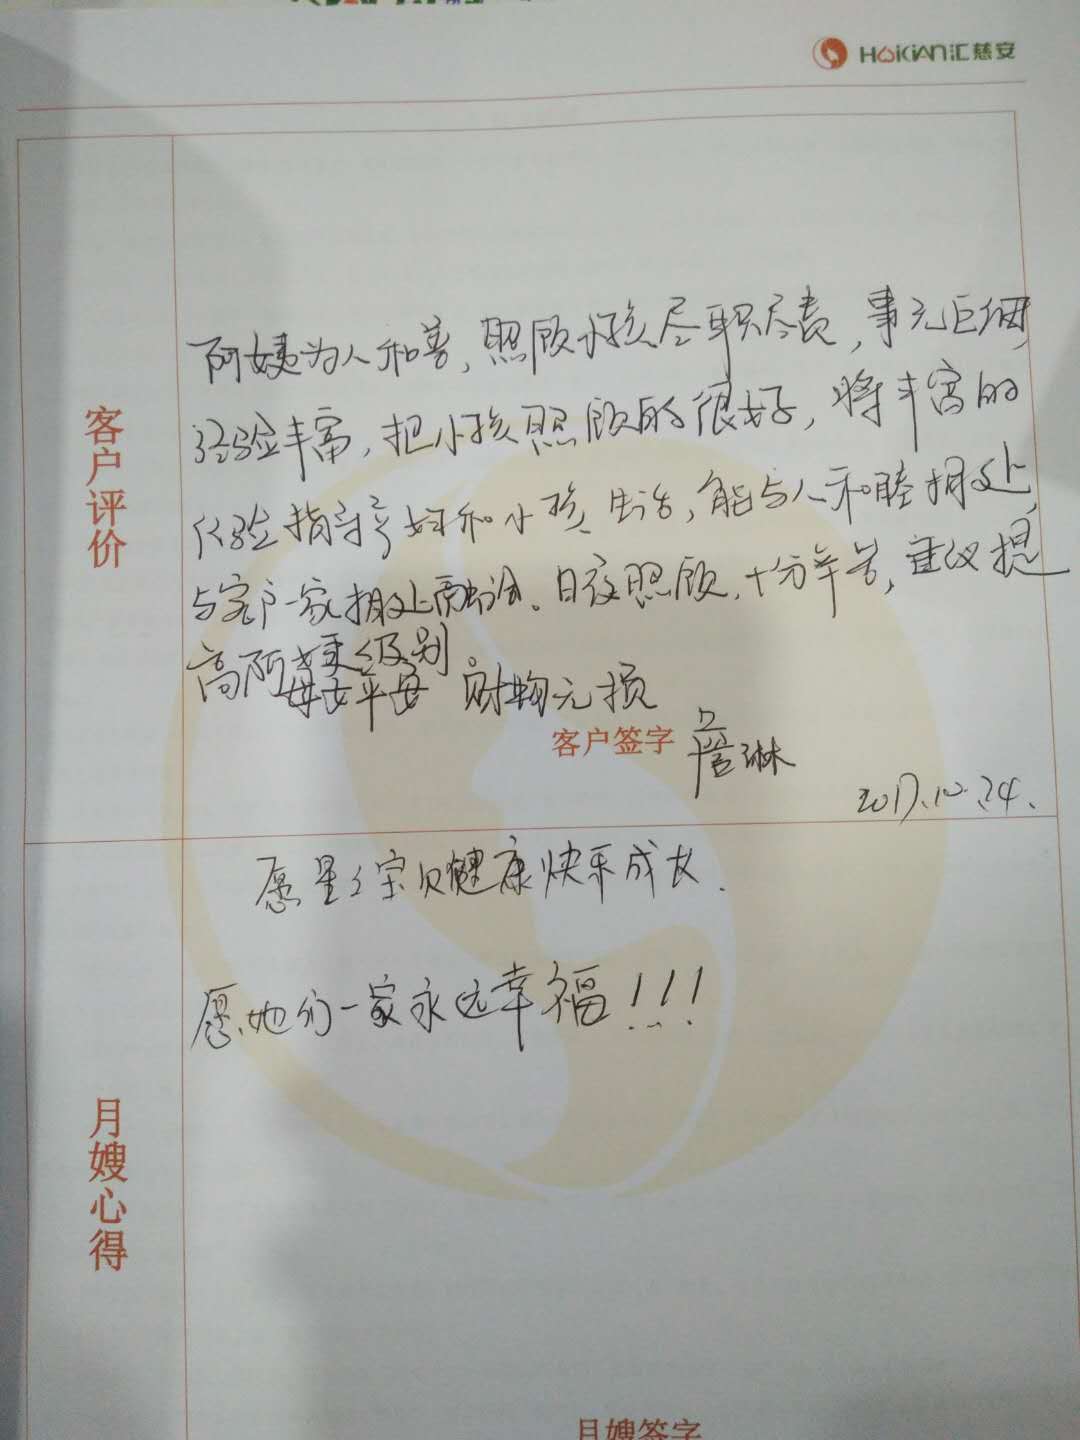 HUIKIAN汇慈安
客户评价
阿姨为人和善,照顾小孩尽职尽责,事无巨细,
经验丰富,把小孩照顾的很好,将丰富的
经验指导孕妇和小孩生活,能与人和睦相处,
与客户一家相处融洽。日夜照顾,十分辛苦,建议提
高阿姨级别。
母女平安 财物无损
客户签字 詹琳
2017.10.24.
月嫂心得
愿星星宝贝健康快乐成长.
愿她们一家永远幸福!!!
月嫂签字